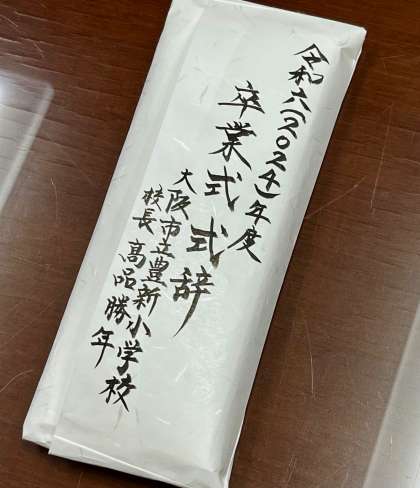 令和六(2024)年度
卒業式式辞
大阪市立豊新小学校
校長 髙品勝年